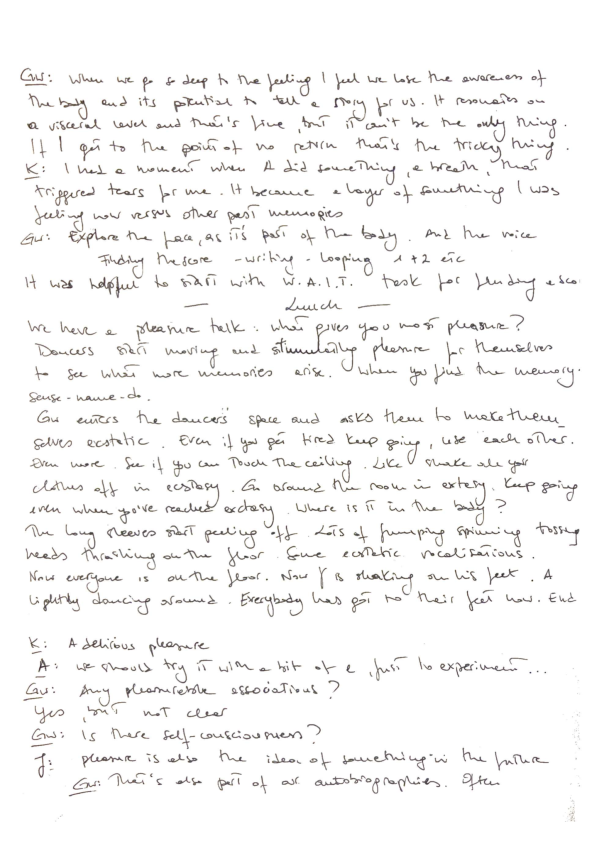 Gu: When we go so deep to the feeling I feel we lose the awareness of
the body and its potential to tell a story for us. It resonates on
a visceral level and that's fine, but it can't be the only thing.
If I get to the point of no return that's the tricky thing.
K: I had a moment when A did something, a breath, that
triggered tears for me. It became a layer of something I was
feeling now versus other past memories
Gu: Explore the face, as it's part of the body. And the voice
Finding the score - writing - looping 1 + 2 etc
It was helpful to start with W.A.I.T. task for finding a sco
— Lunch —
We have a pleasure talk: what gives you most pleasure?
Dancers start moving and stimulating pleasure for themselves
to see what more memories arise. When you find the memory.
sense - name - do.
Gu enters the dancers' space and asks them to make them_
selves ecstatic. Even if you get tired keep going, use each other.
Even more. See if you can touch the ceiling. Like shake all your
clothes off in ecstasy. Go around the room in extasy. Keep going
even when you've reached exctasy. Where is it in the body?
The long sleeves start peeling off. Lots of jumping spinning tossing
heads thrashing on the floor. Some ecstatic vocalisations.
Now everyone is on the floor. Now J is shaking on his feet. A
lightly dancing around. Everybody has got to their feet now. End
K: A delirious pleasure
A: we should try it with a bit of e, just to experiment...
Gu: Any pleasuretable associations?
Yes, but not clear
Gu: Is there self-consciousness?
J: pleasure is also the idea of something in the future
Gu: That's also part of our autobiographies. Often